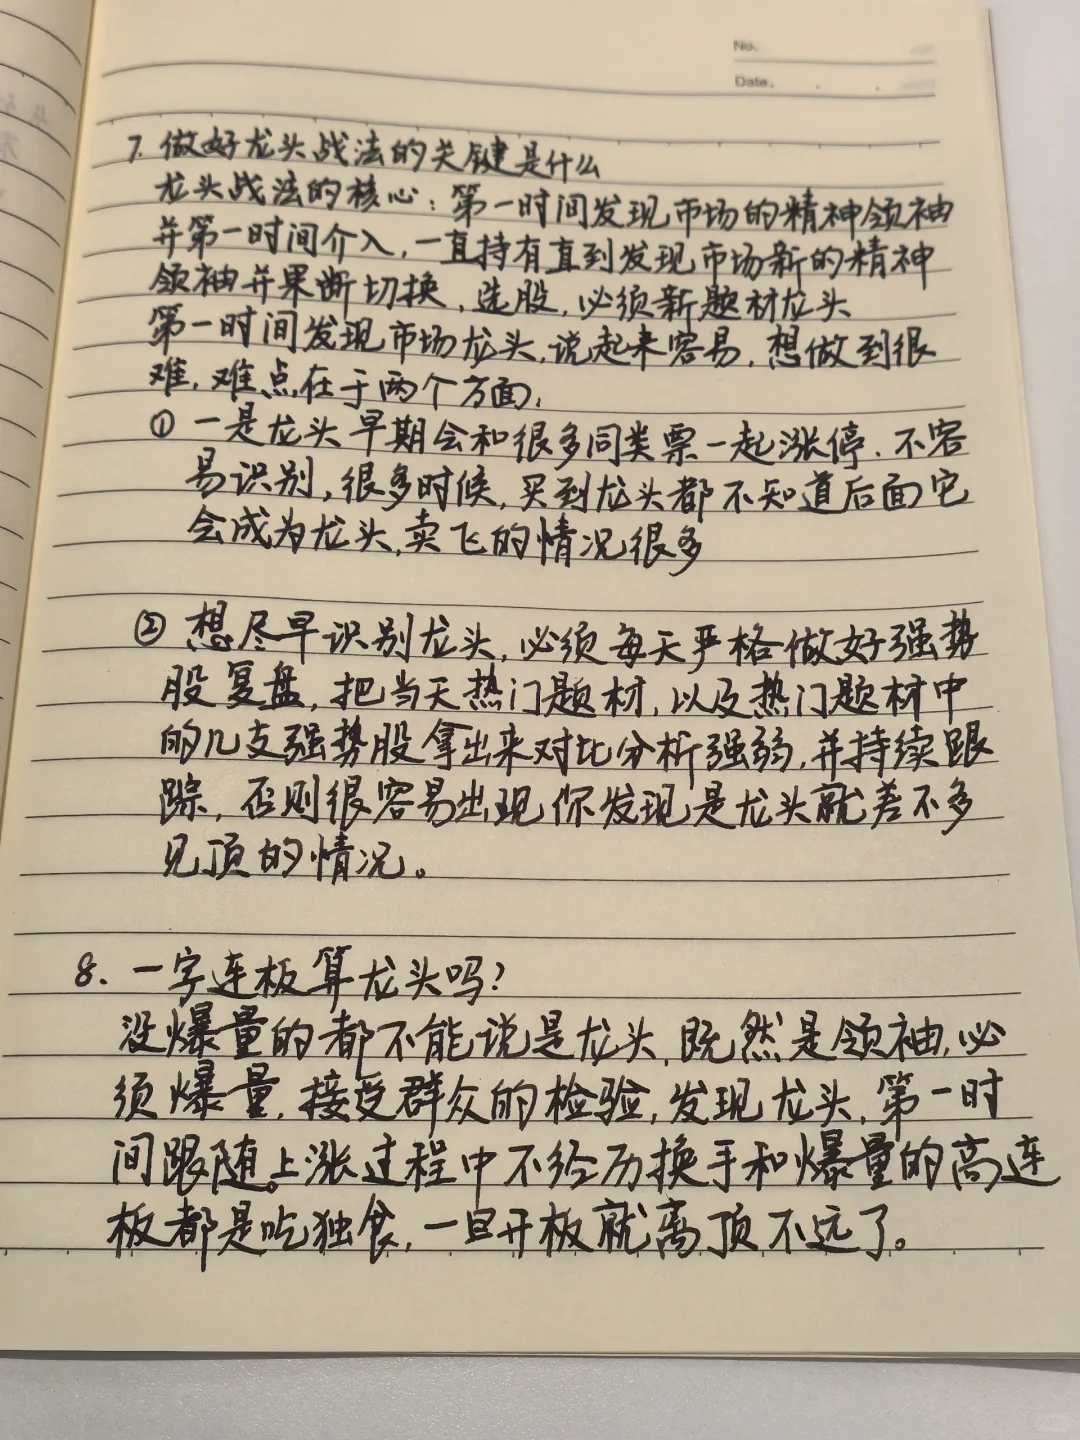 No.
Date.
7. 做好龙头战法的关键是什么
龙头战法的核心：第一时间发现市场的精神领袖
并第一时间介入，一直持有直到发现市场新的精神
领袖并果断切换，选股，必须新题材龙头
第一时间发现市场龙头，说起来容易，想做到很
难，难点在于两个方面，
① 一是龙头早期会和很多同类票一起涨停．不容
易识别，很多时候，买到龙头都不知道后面它
会成为龙头，卖飞的情况很多
② 想尽早识别龙头，必须每天严格做好强势
股复盘，把当天热门题材，以及热门题材中
的几支强势股拿出来对比分析强弱，并持续跟
踪，否则很容易出现你发现是龙头就差不多
见顶的情况。
8. 一字连板算龙头吗？
没爆量的都不能说是龙头，既然是领袖，必
须爆量，接受群众的检验，发现龙头，第一时
间跟随。上涨过程中不经历换手和爆量的高连
板都是吃独食，一旦开板就离顶不远了。